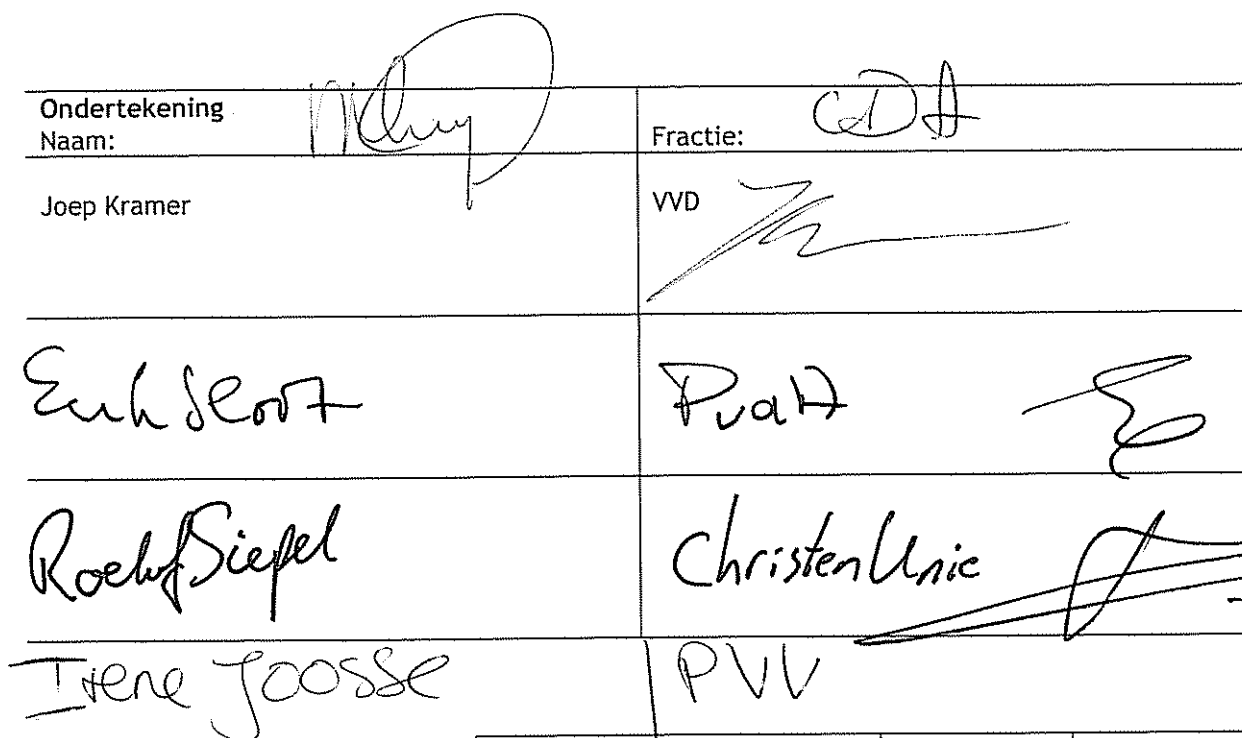 Ondertekening
Naam:
Fractie: CDA
Joep Kramer VVD
Erik Sloot PvdA
Roelof Siepel ChristenUnie
Irene Joosse PVV